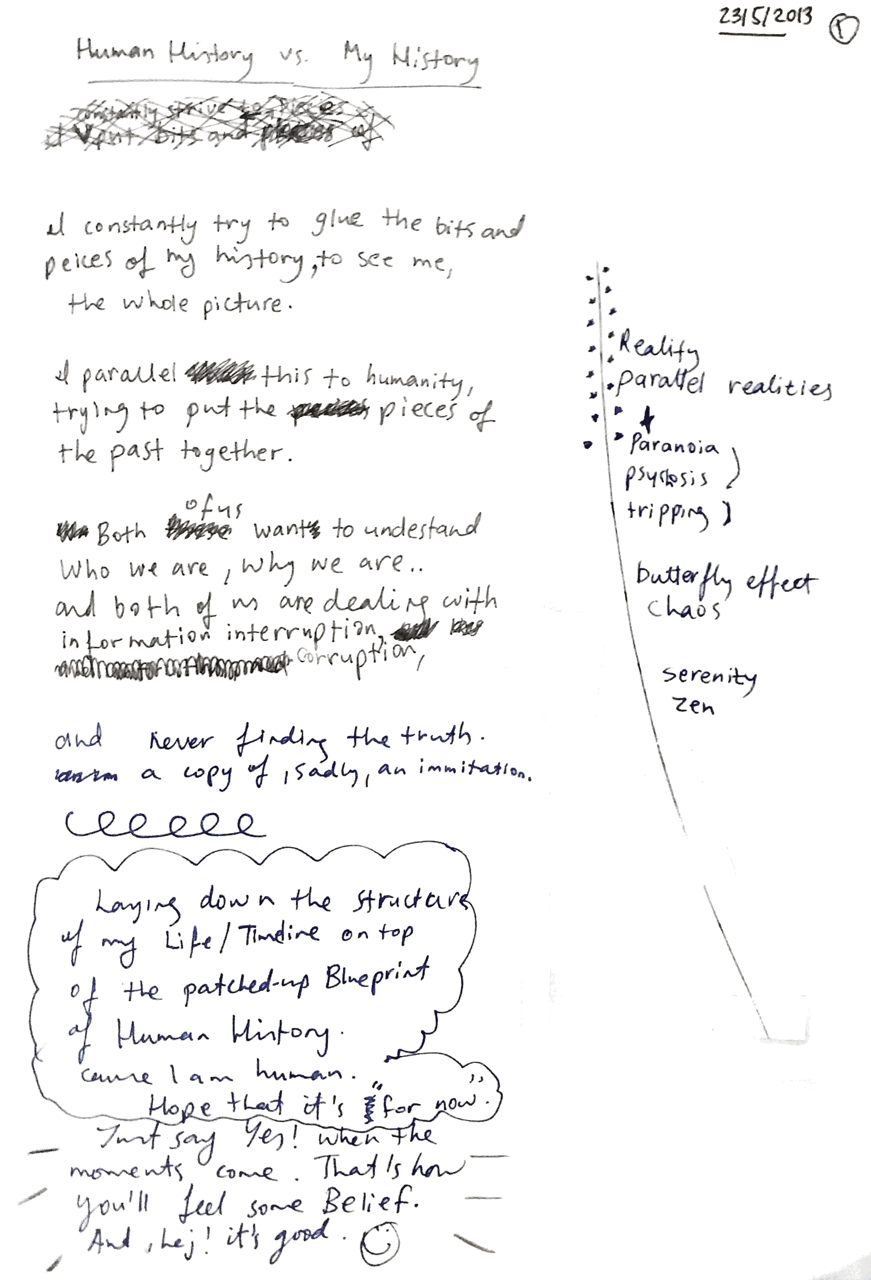 23/5/2013 1
Human History vs. My History
constantly strive to pieces
I want bits and pieces of
I constantly try to glue the bits and
peices of my history, to see me,
the whole picture.
I parallel this to humanity,
trying to put the pieces of
the past together.
of us
Both want to undestand
Who we are, why we are..
and both of us are dealing with
information interruption,
corruption,
and never finding the truth.
a copy of, sadly, an immitation.
Laying down the structure
of my Life/Timeline on top
of the patched-up Blueprint
of Human History.
cause I am human.
Hope that it's "for now".
Just say Yes! when the
moments come. That's how
you'll feel some Belief.
And, hej! it's good.
Reality
parallel realities
Paranoia
psychosis
tripping
butterfly effect
chaos
serenity
zen